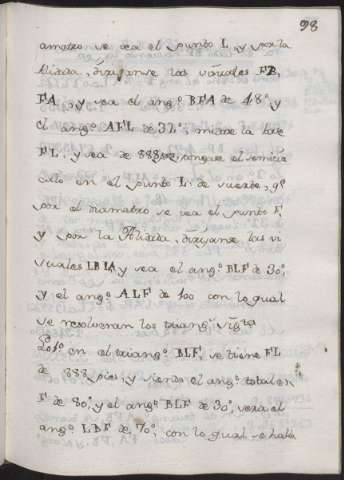 98
ametro se vea el punto L, y por la
Aliada, dirijanse las visuales FB,
FA, y sea el angº BFA de 48º, y
el angº AFL de 32º, midase la base
FL, y sea de 888 pies, pongase el semicir
culo en el punto L, de suerte, qº
por el diametro se vea el punto F,
y por la Aliada, dirijanse las vi
suales LB LA y sea el angº BLF de 30º,
y el angº ALF de 100 con lo qual
se resolveran los triangºˢ
Lo 1º en el triangº BLF, se tiene FL
de 888 pies, y siendo el angº total en
F de 80º, y el angº BLF de 30º, sera el
angº LBF de 70º, con lo qual se hallà